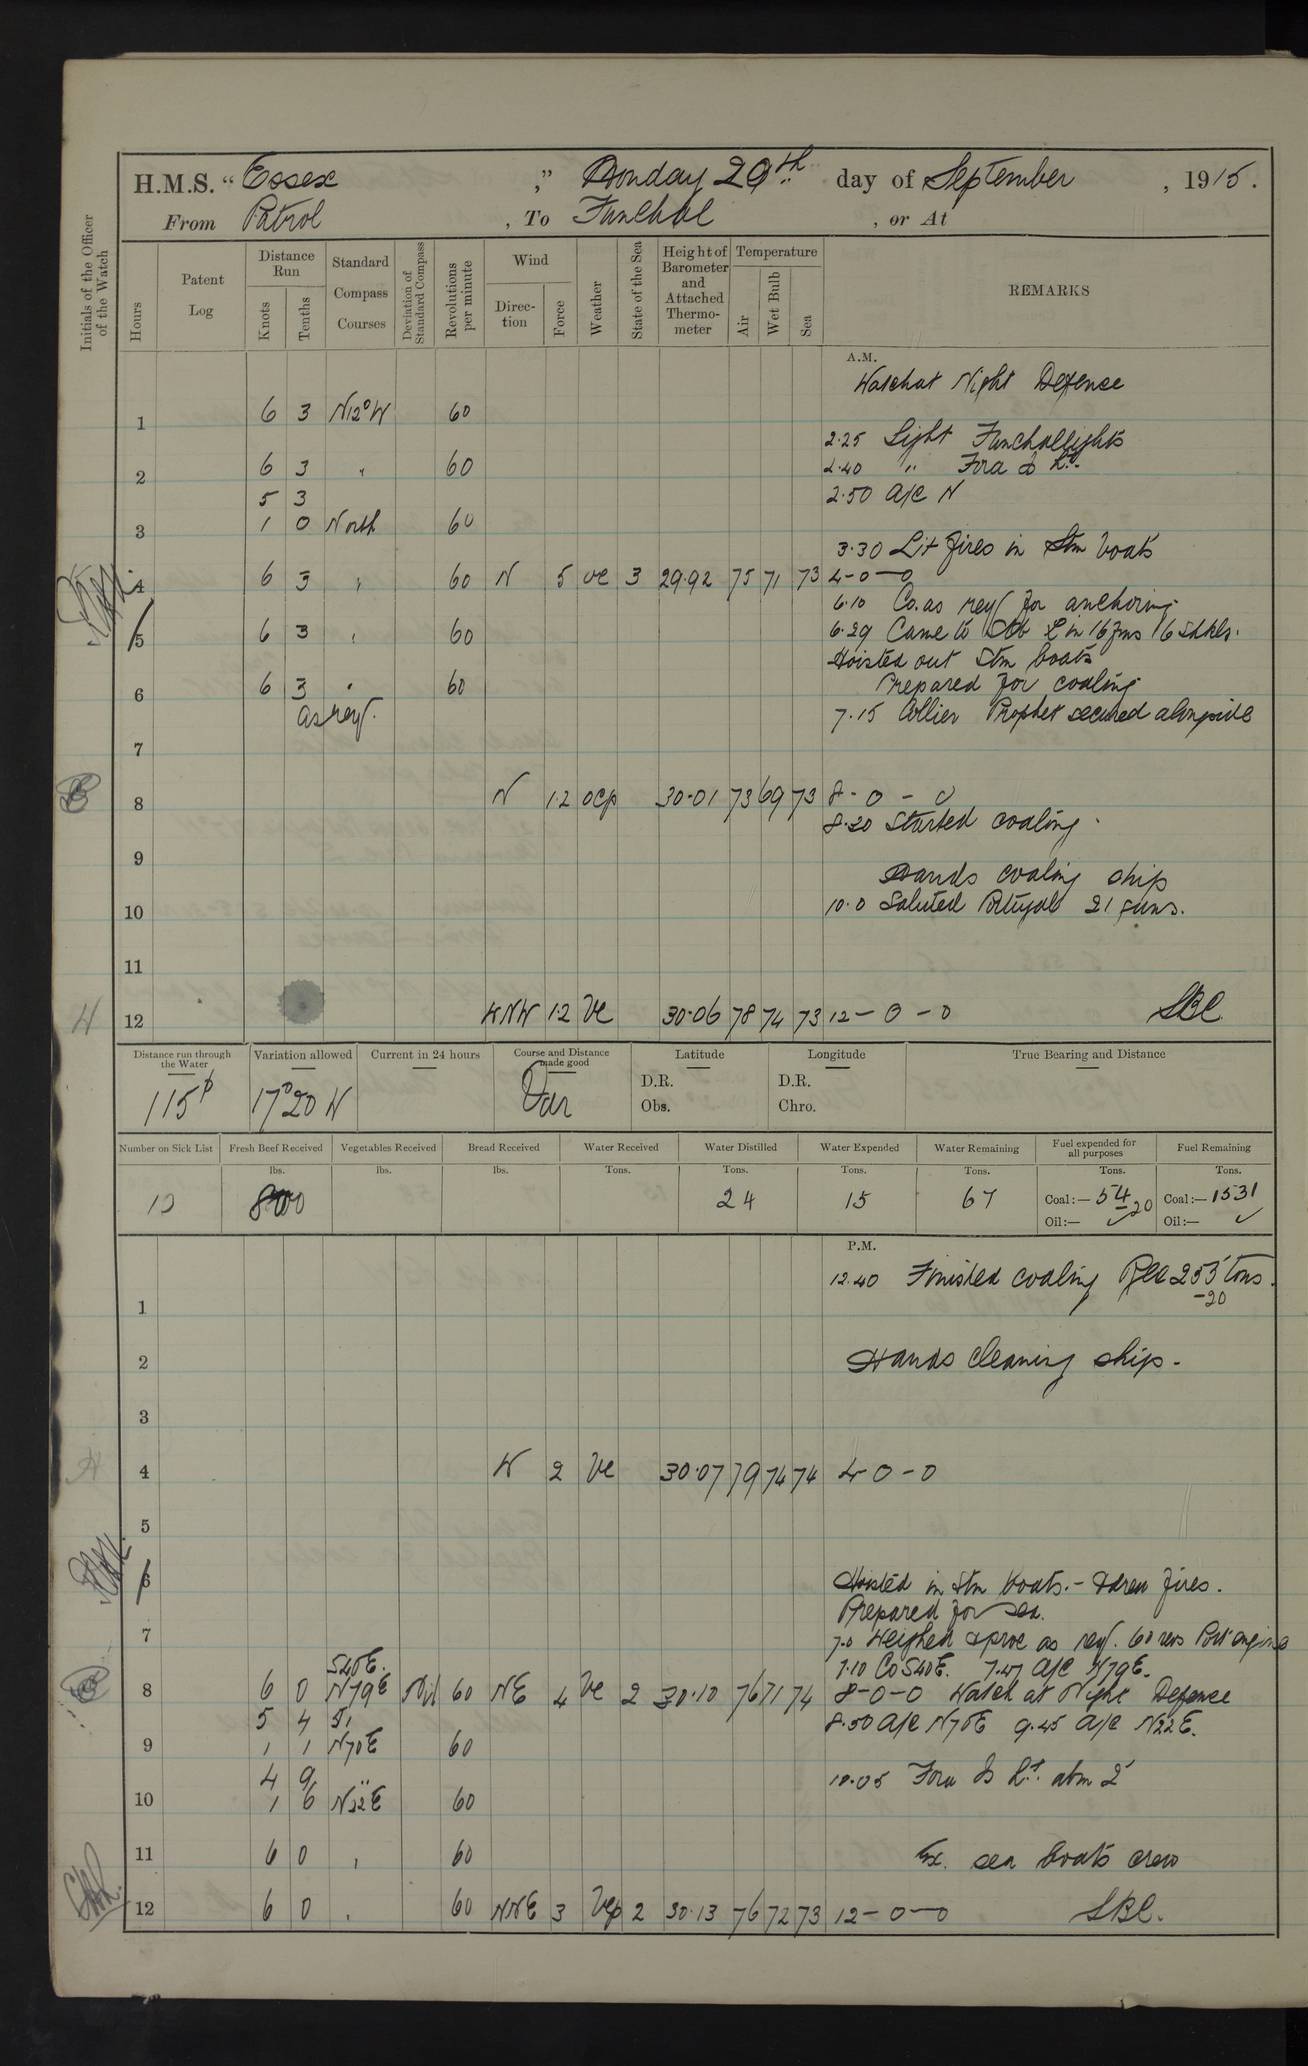 H.M.S. “Essex ,” Monday 20th day of September , 1915.
From Patrol , To Funchal , or At
Initials of the Officer of the Watch
Hours
Patent Log
Distance Run
Knots
Tenths
Standard Compass Courses
Deviation of Standard Compass
Revolutions per minute
Wind
Direction
Force
Weather
State of the Sea
Height of Barometer and Attached Thermometer
Temperature
Air
Wet Bulb
Sea
REMARKS
A.M.
Watch at Night Defence
1 6 3 N12°W 60
2.25 Sight Funchal lights
2 6 3 " 60 2.40 " Fora Is Lt.
5 3 2.50 A/C N
3 1 0 North 60
3.30 Lit fires in Stm boats
4 6 3 " 60 N 5 vc 3 29.92 75 71 73 4-0-0
6.10 Co. as req for anchoring
5 6 3 " 60 6.29 Came to in 16 fms 6 Shkls.
Hoisted out Stm boats
6 6 3 " 60 Prepared for coaling
as req. 7.15 Collier Prophet secured alongside
7
8 N 1.2 ocp 30.01 73 69 73 8-0-0
8.20 Started coaling.
9
Hands coaling ship
10 10.0 Saluted Portugal 21 guns.
11
12 WNW 1.2 Vc 30.06 78 74 73 12-0-0 SBC
Distance run through the Water
Variation allowed
Current in 24 hours
Course and Distance made good
Latitude
Longitude
True Bearing and Distance
D.R. D.R.
115 17°20 W Var Obs. Chro.
Number on Sick List
Fresh Beef Received
Vegetables Received
Bread Received
Water Received
Water Distilled
Water Expended
Water Remaining
Fuel expended for all purposes
Fuel Remaining
lbs. lbs. lbs. Tons. Tons. Tons. Tons. Tons. Tons.
10 800 24 15 67 Coal:— 54 20 Coal:— 1531
Oil:— ✓ Oil:— ✓
P.M.
12.40 Finished coaling Rec 255 tons.
-20
1
2 Hands cleaning ship.
3
4 W 2 Vc 30.07 79 74 74 4-0-0
5
6 Hoisted in Stm boats.- Drew fires.
Prepared for sea.
7 7.0 Weighed & proc as req. 60 revs Port engine
S40E. 7.10 Co S40E. 7.47 A/C N79E.
8 6 0 N79E Nil 60 NE 4 Vc 2 30.10 76 71 74 8-0-0 Watch at Night Defence
5 4 8.50 A/C N70E 9.45 A/C N22E.
9 1 1 N70E 60
4 9 " 10.05 Fora Is Lt. abm 2'
10 1 6 N22E 60
11 6 0 " 60 Ex. sea boats crew
12 6 0 " 60 NNE 3 Vcp 2 30.13 76 72 73 12-0-0 SBC.